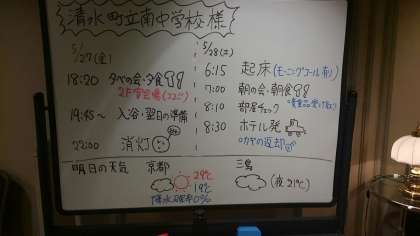 清水町立南中学校様
5/27(金)
18:20 夕べの会・夕食
2F宴会場
19:45〜 入浴・翌日の準備
22:00 消灯
5/28(土)
6:15 起床(モーニングコール有り)
7:00 朝の会・朝食
8:10 部屋チェック
8:30 ホテル発
°カギの返却
明日の天気 京都 三島
29℃
19℃
降水確率0%
(夜 21℃)